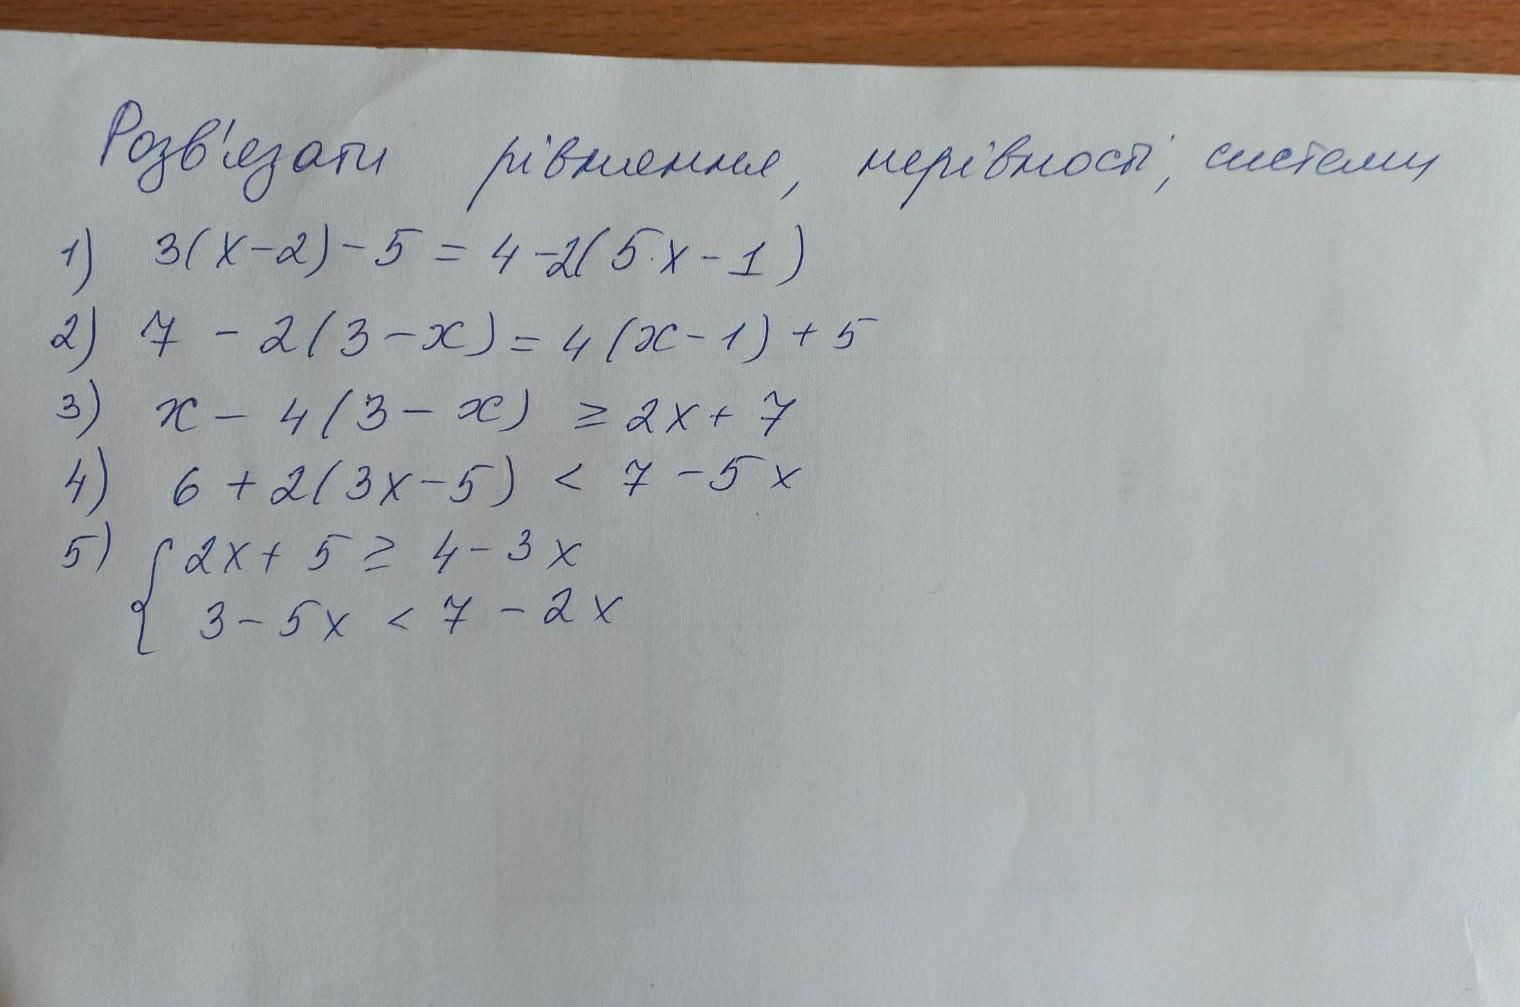 Розв'язати рівняння, нерівності, системи
1) 3(x-2)-5 = 4-2(5x-1)
2) 7 - 2(3-x) = 4(x-1)+5
3) x - 4(3-x) ≥ 2x+7
4) 6+2(3x-5) < 7-5x
5) { 2x+5 ≥ 4-3x
3-5x < 7-2x